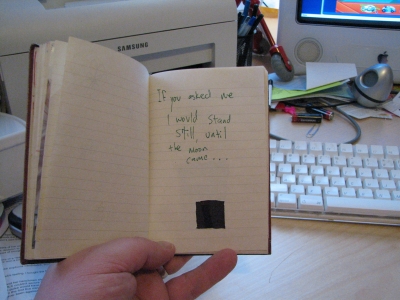 SAMSUNG
If you asked me
I would stand
still, until
the moon
came...